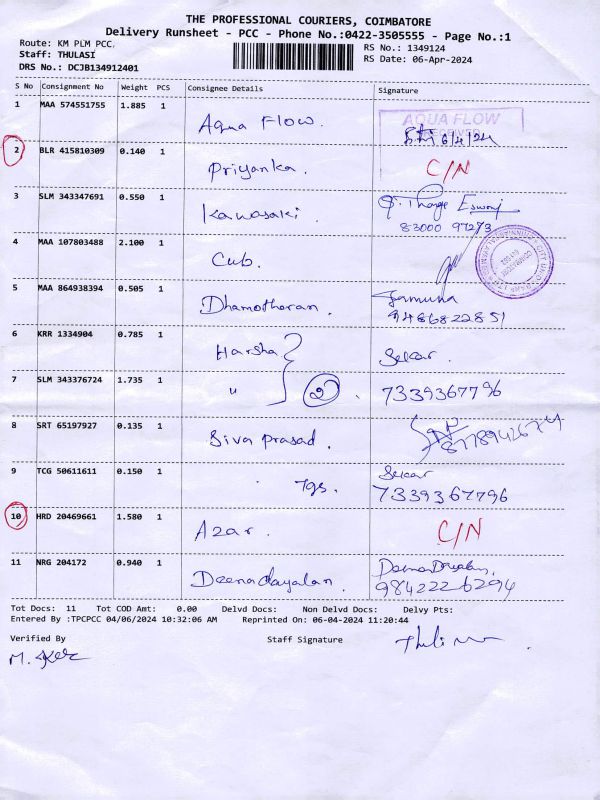 THE PROFESSIONAL COURIERS, COIMBATORE
Delivery Runsheet - PCC - Phone No.:0422-3505555 - Page No.:1
Route: KM PLM PCC.
RS No.: 1349124
Staff: THULASI
RS Date: 06-Apr-2024
DRS No.: DCJB134912401
S No Consignment No Weight PCS Consignee Details Signature
1 MAA 574551755 1.885 1 Aqua Flow. AQUA FLOW
RECEIVED 6/4/24
2 BLR 415810309 0.140 1 Priyanka. C/N
3 SLM 343347691 0.550 1 Kawasaki.
83000 97273
4 MAA 107803488 2.100 1 Cub.
5 MAA 864938394 0.505 1 Dhamotharan. Jamuna
9486822851
6 KRR 1334904 0.785 1 Harsha Sekar.
7 SLM 343376724 1.735 1 " 2. 7339367796
8 SRT 65197927 0.135 1 Siva Prasad.
9 TCG 50611611 0.150 1 Tgs. Sekar
7339367796
10 HRD 20469661 1.580 1 Azar. C/N
11 NRG 204172 0.940 1 Deenadayalan. DeenaDayalan,
9842226294
Tot Docs: 11 Tot COD Amt: 0.00 Delvd Docs: Non Delvd Docs: Delvy Pts:
Entered By :TPCPCC 04/06/2024 10:32:06 AM Reprinted On: 06-04-2024 11:20:44
Verified By Staff Signature